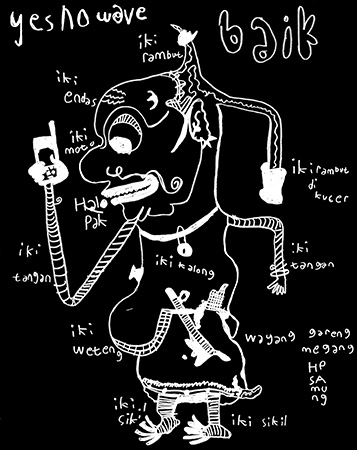 yesno wave
baik
iki
rambut
iki
endas
iki
moto
iki rambut
di
kucer
Halo
Pak
iki
tangan
iki
tangan
iki kalong
iki
weteng
wayang
gareng
megang
HP
SA
mu
ng
iki
sikil
iki sikil